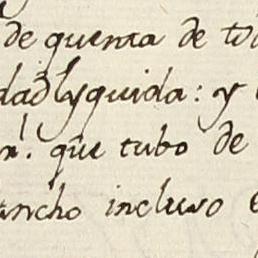 de quenta de to
dad lyquida: y
n.l que tubo de
ancho incluso